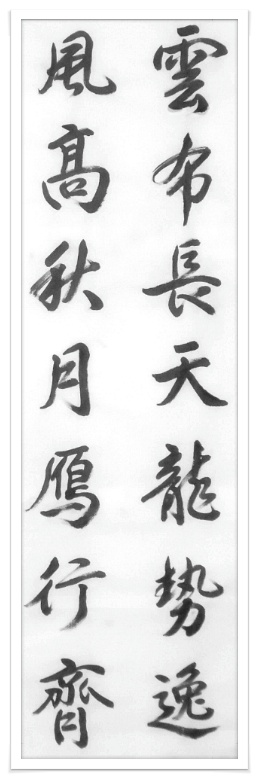 雲布長天龍勢逸
風高秋月鴈行齊